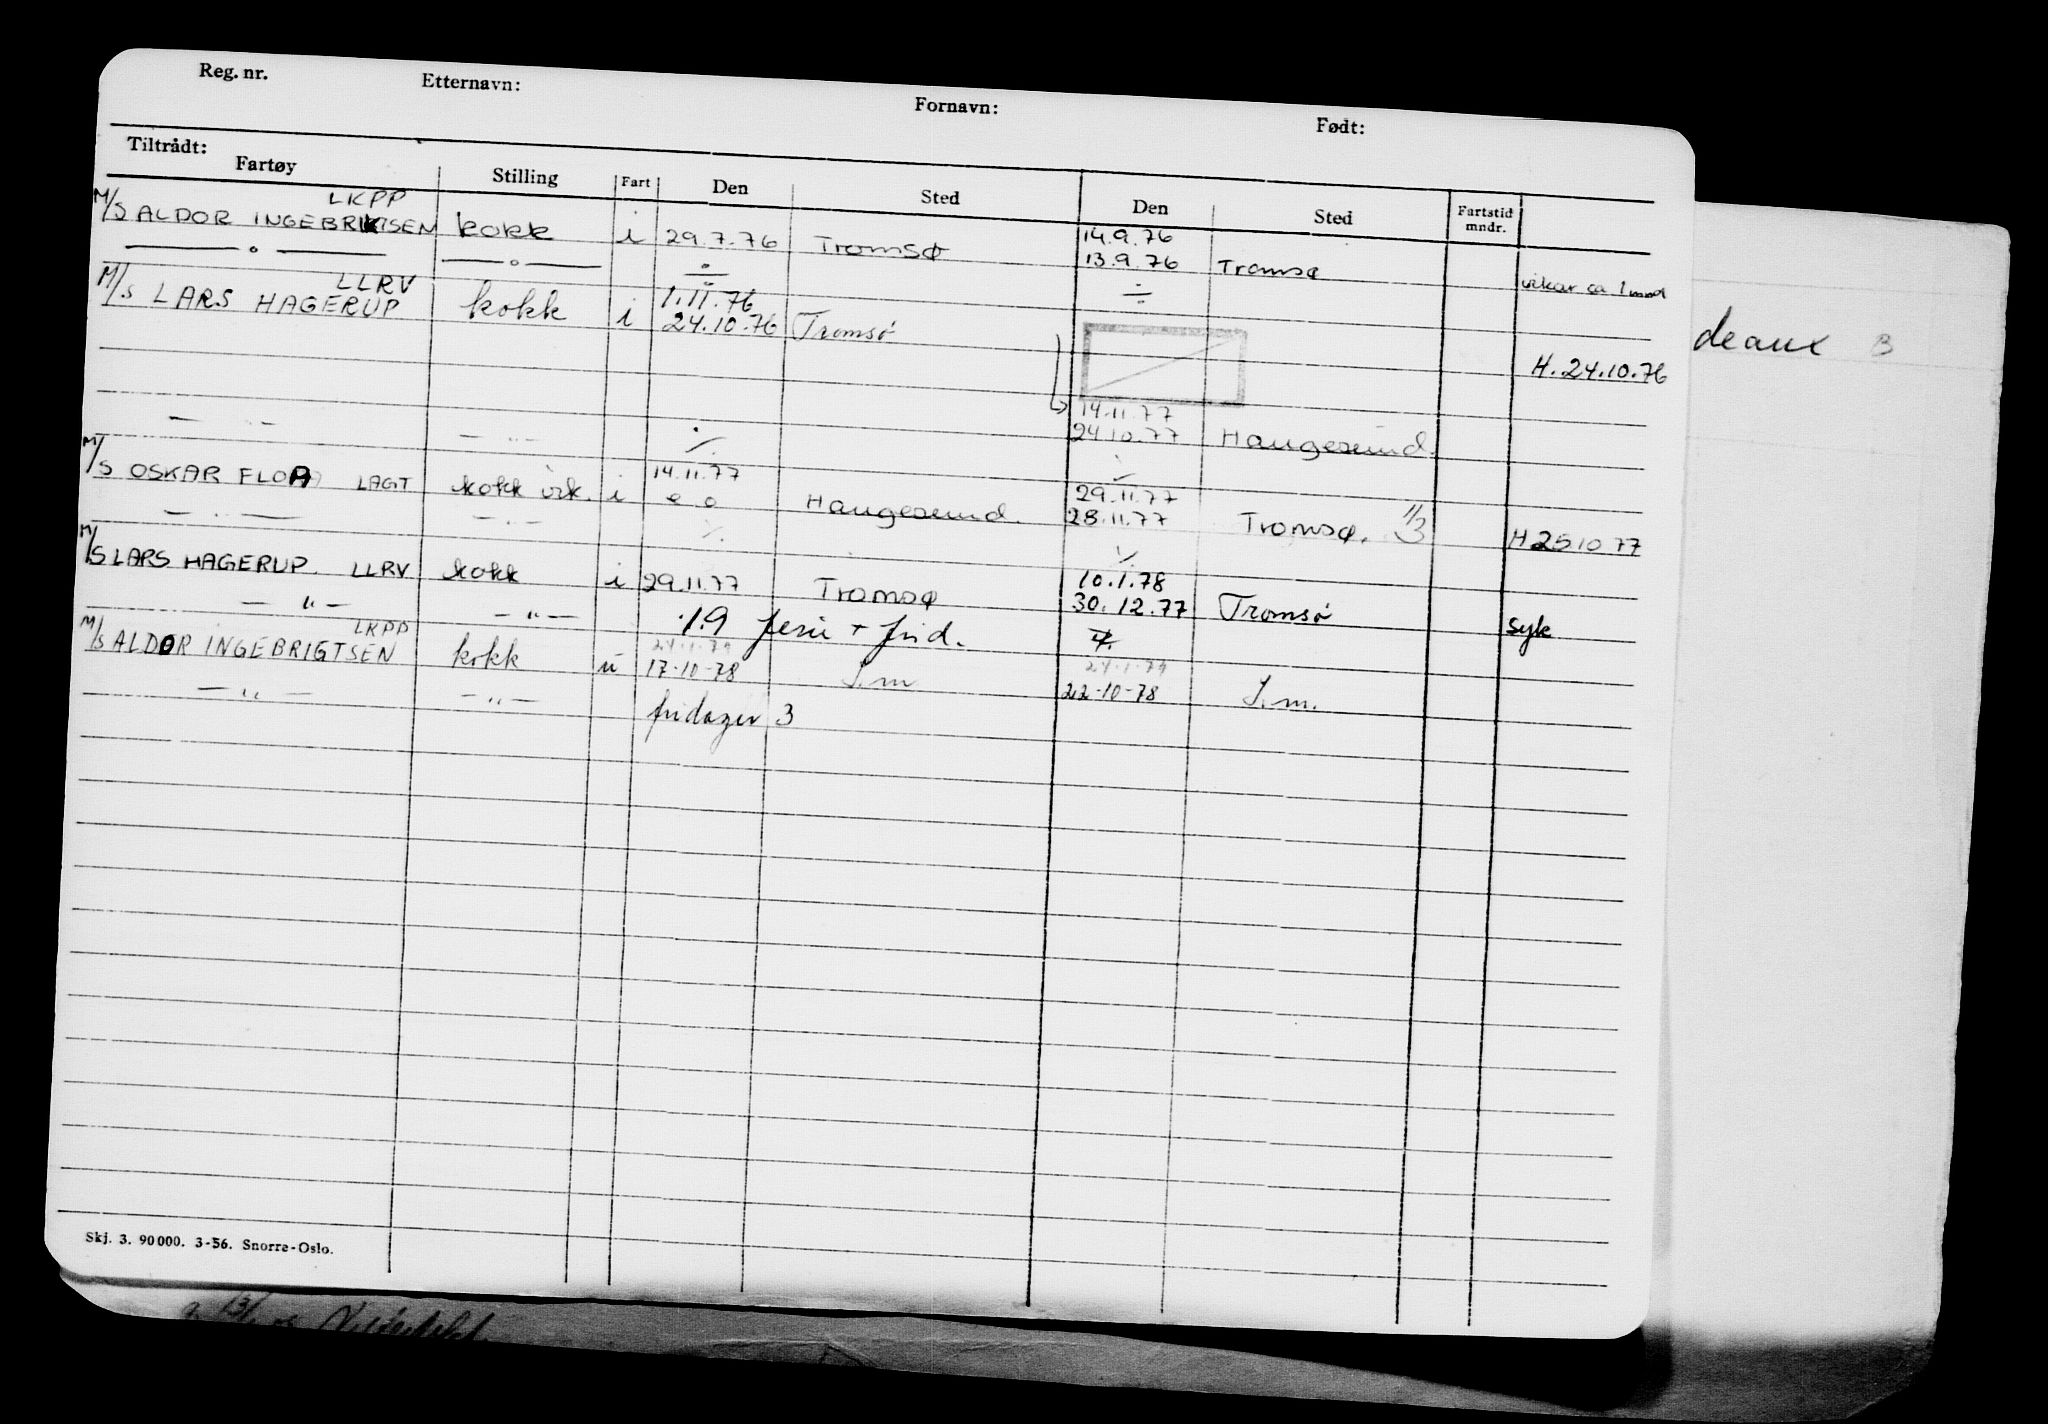 Reg. nr. Etternavn: Fornavn: Født:
Tiltrådt:
Fartøy Stilling Fart Den Sted Den Sted Fartstid mndr.
LKPP
M/S ALDOR INGEBRIKTSEN kokk i 29.7.76 Tromsø 14.9.76
— o — — o — ÷ 13.9.76 Tromsø vikar ca 1 mnd
LLRV 1.11.76 ÷
M/s LARS HAGERUP kokk i 24.10.76 Tromsø
H. 24.10.76
14.11.77
— " — — " — ÷ 24.10.77 Haugesund.
14.11.77
M/S OSKAR FLOA LAGT kokk vik. i Haugesund. 29.11.77
— " — — " — 28.11.77 Tromsø. 1/3 H 25 10 77
M/S LARS HAGERUP. LLRV kokk i 29.11.77 Tromsø 10.1.78
— " — — " — 19 ferie + frid. 30.12.77 Tromsø syk
LKPP 24.1.79 24.1.79
M/S ALDOR INGEBRIGTSEN kokk u 17-10-78 I.m 22-10-78 I.m.
— " — — " — fridager 3
Skj. 3. 90000. 3-56. Snorre-Oslo.
deaux B